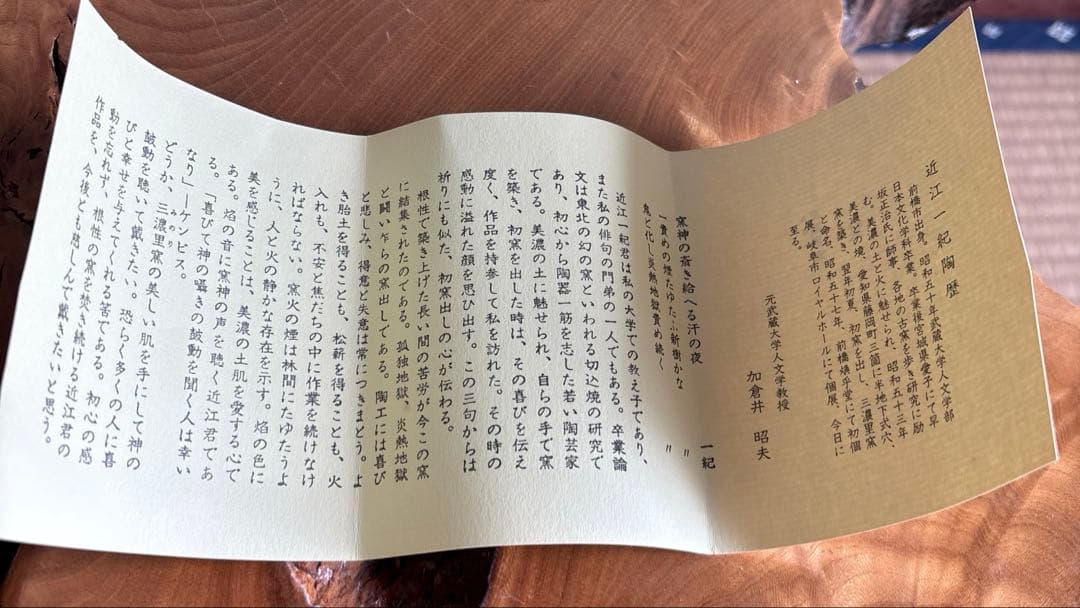 近江一紀陶歴
前橋市出身。昭和五十年武蔵大学人文学部
日本文化学科卒業。卒業後宮城県愛子にて早
坂正治氏に師事、各地の古窯を歩き研究に励
む。美濃の土と火に魅せられ、昭和五十三年
美濃との境、愛知県藤岡町三箇に半地下式穴
窯を築き、翌年初夏、初窯を出し、三濃里窯
と命名。昭和五十七年、前橋煥乎堂にて初個
展、岐阜市ロイヤルホールにて個展、今日に
至る。
元武蔵大学人文学教授
加倉井 昭夫
窯神の斎き給へる汗の夜 一紀
一責めの煙たゆたふ新樹かな 〃
息と化し炎熱地獄責め続く 〃
近江一紀君は私の大学での教え子であり、
また私の俳句の門弟の一人でもある。卒業論
文は東北の幻の窯といわれる切込焼の研究で
あり、初心から陶器一筋を志した若い陶芸家
である。美濃の土に魅せられ、自らの手で窯
を築き、初窯を出した時は、その喜びを伝え
度く、作品を持参して私を訪れた。その時の
感動に溢れた顔を思ひ出す。この三句からは
祈りにも似た、初窯出しの心が伝わる。
根性で築き上げた長い間の苦労が今この窯
に結集されたのである。孤独地獄、炎熱地獄
と闘い乍らの窯出しである。陶工には喜び
と悲しみ、得意と失意は常につきまとう。よ
き胎土を得ることも、松薪を得ることも、火
入れも、不安と焦だちの中に作業を続けなけ
ればならない。窯火の煙は林間にたゆたうよ
うに、人と火の静かな存在を示す。焰の色に
美を感じることは、美濃の土肌を愛する心で
ある。焰の音に窯神の声を聴く近江君であ
る。「喜びて神の囁きの鼓動を聞く人は幸い
なり」―ケンピス。
どうか、三濃里窯の美しい肌を手にして神の
みのり
鼓動を聴いて戴きたい。恐らく多くの人に喜
びと幸せを与えてくれる筈である。初心の感
動を忘れず、根性の窯を焚き続ける近江君の
作品を、今後とも惜しんで戴きたいと思う。